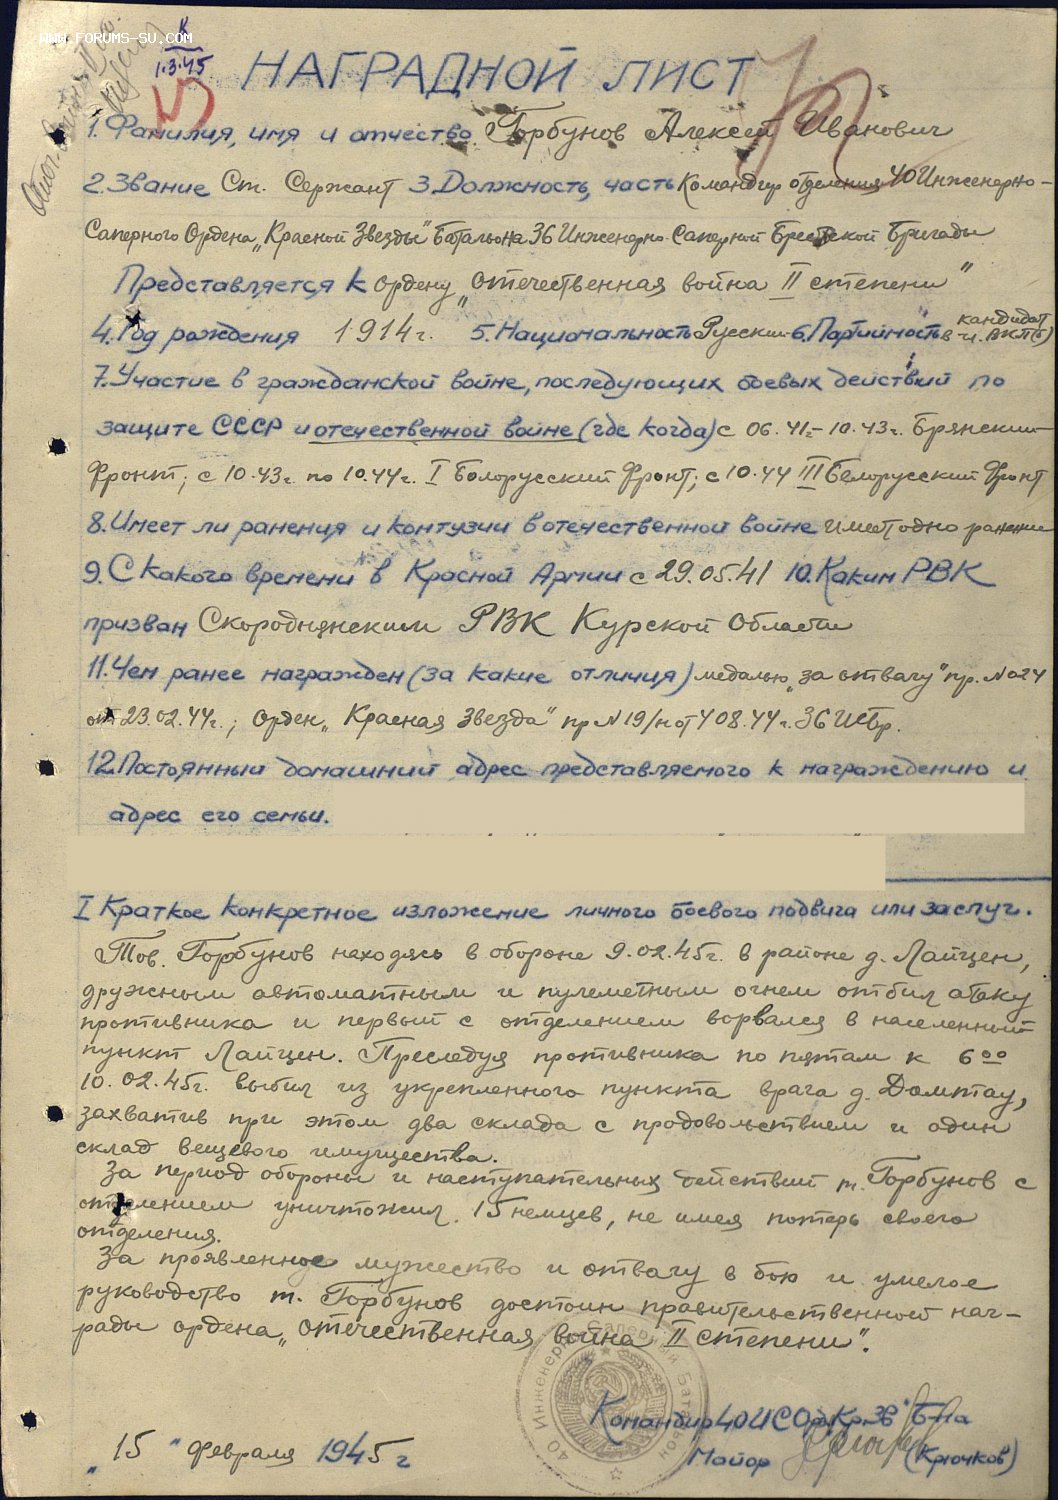 WWW.FORUMS-SU.COM
1.3.45
НАГРАДНОЙ ЛИСТ
1. Фамилия, имя и отчество Горбунов Алексей Иванович
2. Звание Ст. Сержант 3. Должность, часть Командир отделения 40 Инженерно-
Саперного Ордена „Красной Звезды" Батальона 36 Инженерно-Саперной Брестской Бригады
Представляется к ордену „Отечественная война II степени"
4. Год рождения 1914 г. 5. Национальность Русский 6. Партийность кандидат в чл. ВКП(б)
7. Участие в гражданской войне, последующих боевых действий по
защите СССР и отечественной войне (где когда) с 06.41г- 10.43г. Брянский
Фронт; с 10.43г. по 10.44г. I Белорусский Фронт; с 10.44 III Белорусский Фронт
8. Имеет ли ранения и контузии в отечественной войне имеет одно ранение
9. С какого времени в Красной Армии с 29.05.41 10. Каким РВК
призван Скороднянским РВК Курской Области
11. Чем ранее награжден (за какие отличия) медалью „за отвагу" пр. №024
от 23.02.44г.; орден „Красная Звезда" пр N 19/н от 4 08.44г. 36 ИСБр.
12. Постоянный домашний адрес представляемого к награждению и
адрес его семьи.
I Краткое конкретное изложение личного боевого подвига или заслуг.
Тов. Горбунов находясь в обороне 9.02.45г. в районе д. Лайцен,
дружным автоматным и пулеметным огнем отбил атаку
противника и первый с отделением ворвался в населенный
пункт Лайцен. Преследуя противника по пятам к 6 00
10.02.45г. выбил из укрепленного пункта врага д. Домтау,
захватив при этом два склада с продовольствием и один
склад вещевого имущества.
За период обороны и наступательных действий т. Горбунов с
отделением уничтожил 15 немцев, не имея потерь своего
отделения.
За проявленное мужество и отвагу в бою и умелое
руководство т. Горбунов достоин правительственной наг-
рады ордена „Отечественная война II степени".
40 Инженерно Саперный Батальон
Командир 40 ИС Орд. Кр. Зв. Б-на
„15" февраля 1945 г Майор (Крючков)